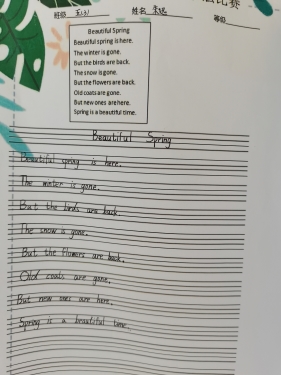 比赛
班级 姓名 等级
Beautiful Spring
Beautiful spring is here.
The winter is gone.
But the birds are back.
The snow is gone.
But the flowers are back.
Old coats are gone.
But new ones are here.
Spring is a beautiful time.
Beautiful Spring
Beautiful spring is here.
The winter is gone.
But the birds are back.
The snow is gone.
But the flowers are back.
Old coats are gone.
But new ones are here.
Spring is a beautiful time.